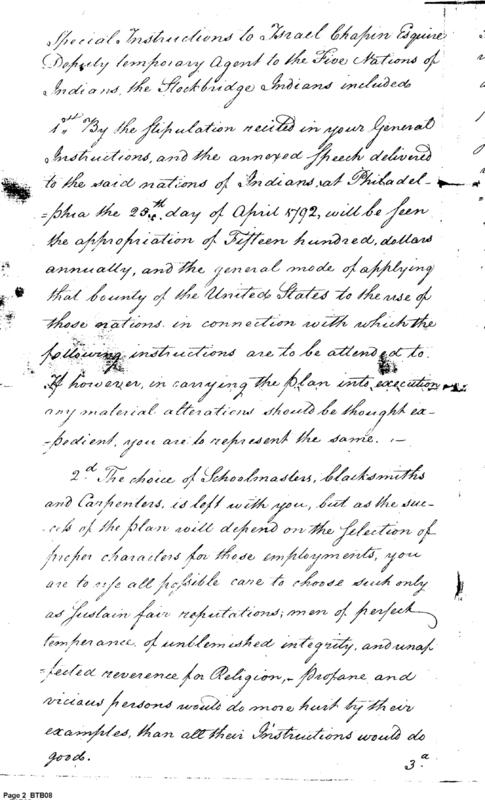 Special Instructions to Israel Chapin Esquire
Deputy temporary Agent to the Five Nations of
Indians, the Stockbridge Indians included
1st. By the stipulation recited in your General
Instructions, and the annexed speech delivered
to the said nations of Indians, at Philadel-
=phia the 25th. day of April 1792, will be seen
the appropriation of Fifteen hundred, dollars
annually, and the general mode of applying
that bounty of the United States to the use of
those nations in connection with which the
following instructions are to be attended to.
If however, in carrying the plan into execution
any material alterations should be thought ex-
-pedient, you are to represent the same. –
2.d The choice of Schoolmasters, blacksmiths
and Carpenters, is left with you, but as the suc-
cess of the plan will depend on the selection of
proper characters for those employments, you
are to use all possible care to choose such only
as sustain fair reputations; men of perfect
temperance, of unblemished integrity, and unaf
=fected reverence for Religion, – Profane and
vicious persons would do more hurt by their
examples, than all their Instructions would do
good.
3.d
Page 2 BTB08